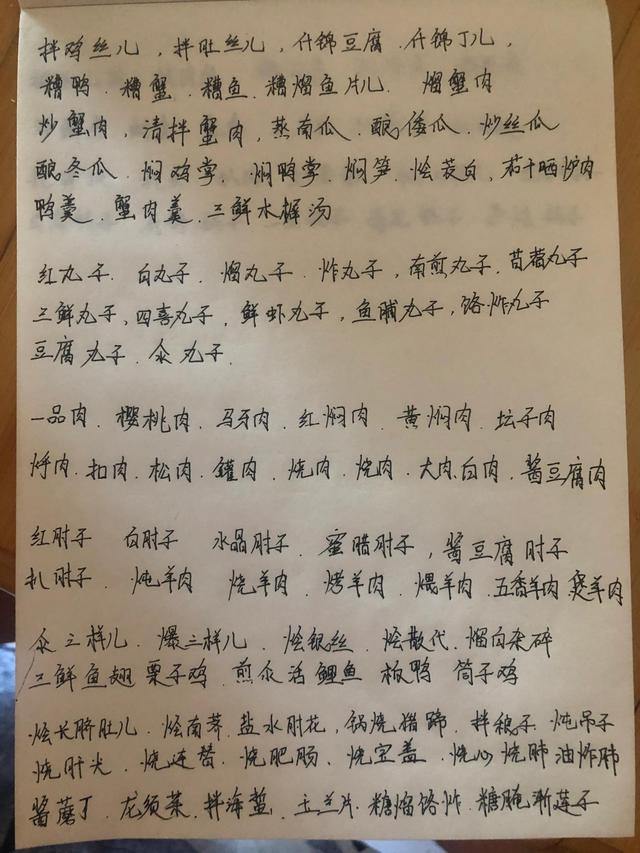 拌鸡丝儿，拌肚丝儿，什锦豆腐．什锦丁儿，
糟鸭．糟蟹．糟鱼．糟熘鱼片儿．熘蟹肉
炒蟹肉，清拌蟹肉，蒸南瓜．酿倭瓜．炒丝瓜
酿冬瓜．焖鸡掌．焖鸭掌．焖笋．烩茭白，茄干晒炉肉
鸭羹．蟹肉羹．三鲜木樨汤
红丸子．白丸子．熘丸子．炸丸子，南煎丸子．苜蓿丸子
三鲜丸子、四喜丸子，鲜虾丸子，鱼脯丸子，饹炸丸子
豆腐丸子．汆丸子．
一品肉．樱桃肉．马牙肉．红焖肉．黄焖肉．坛子肉
烀肉．扣肉．松肉．罐肉．烧肉．烧肉．大肉．白肉．酱豆腐肉
红肘子 白肘子 水晶肘子．蜜腊肘子，酱豆腐肘子
扒肘子．炖羊肉 烧羊肉 烤羊肉．煨羊肉．五香羊肉 煲羊肉
汆三样儿．爆三样儿．烩银丝．烩散代．熘白杂碎
三鲜鱼翅 栗子鸡．煎汆活鲤鱼 板鸭 筒子鸡
烩长脐肚儿．烩南荠．盐水肘花，锅烧猪蹄．拌稂子．炖吊子
烧肝尖．烧连替．烧肥肠．烧宝盖．烧心 烧肺 油炸肺
酱蘑丁．龙须菜．拌海蜇．玉兰片．糖熘饹炸．糖腌渐莲子